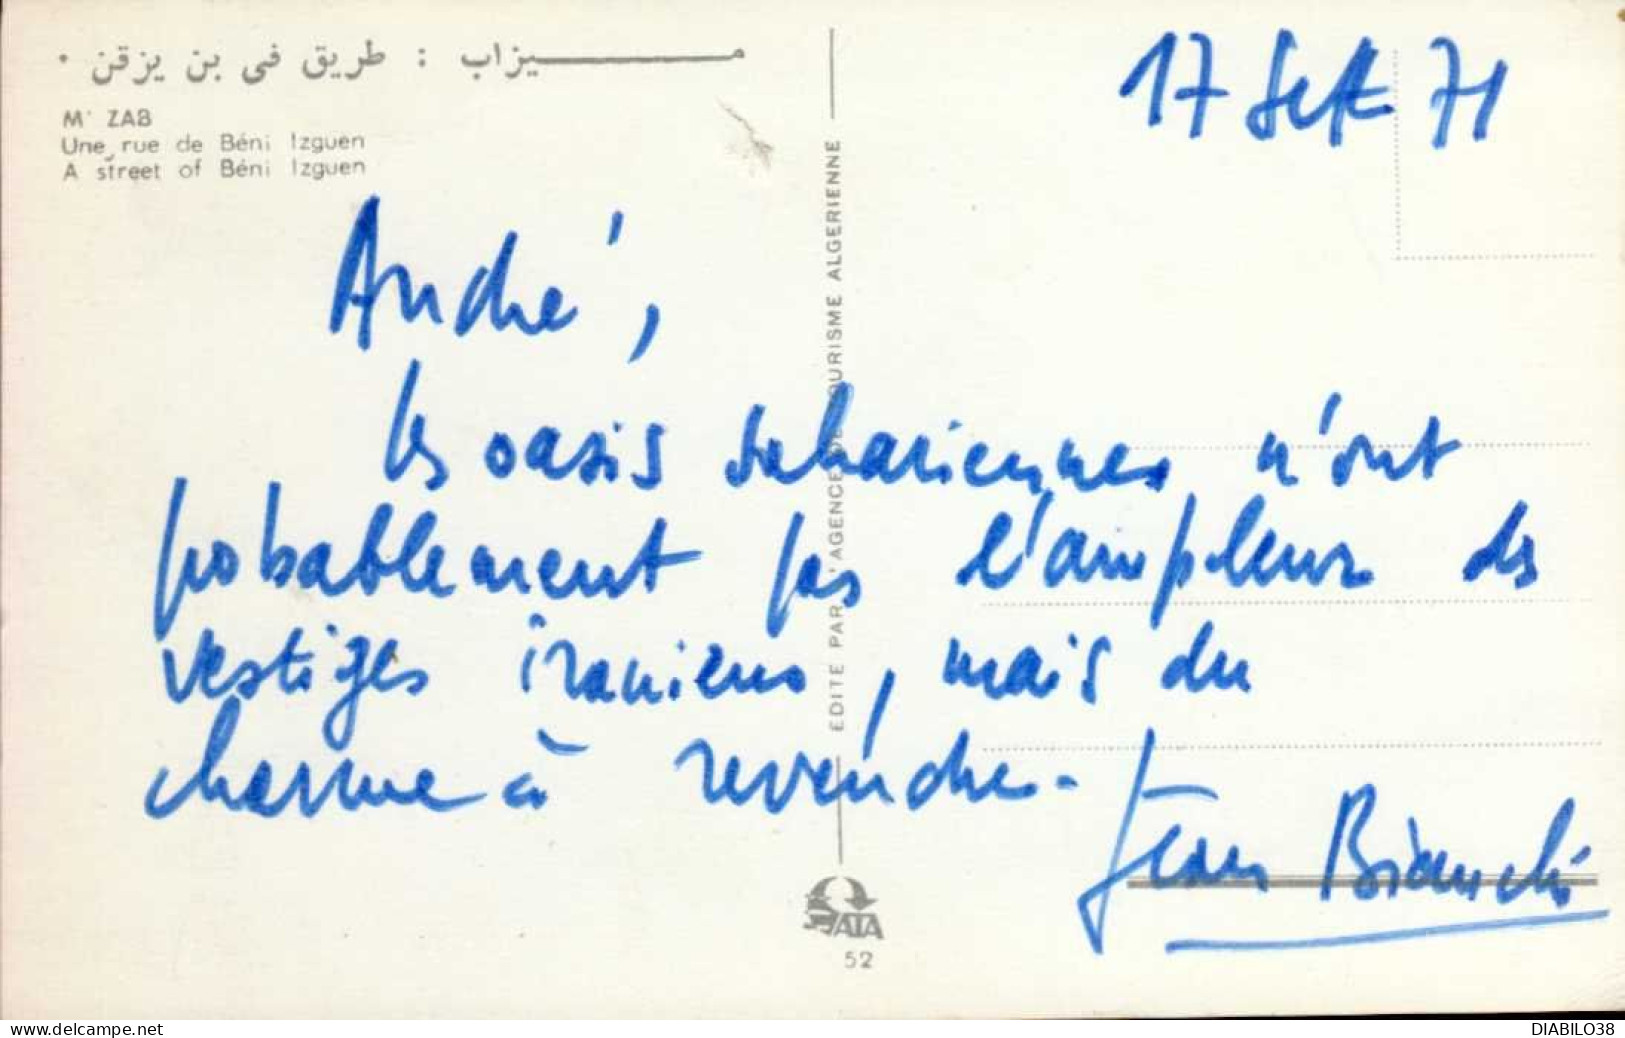 مـــيزاب : طريق في بن يزقن .
M' ZAB
Une rue de Béni Izguen
A street of Béni Izguen
17 Sept 71
André,
les oasis sahariennes n'ont
probablement pas l'ampleur des
vestiges iraniens, mais du
charme à revendre.
Jean Bianchi
EDITE PAR L'AGENCE DE TOURISME ALGERIENNE
ATA
52
delcampe.net
DIABILO38